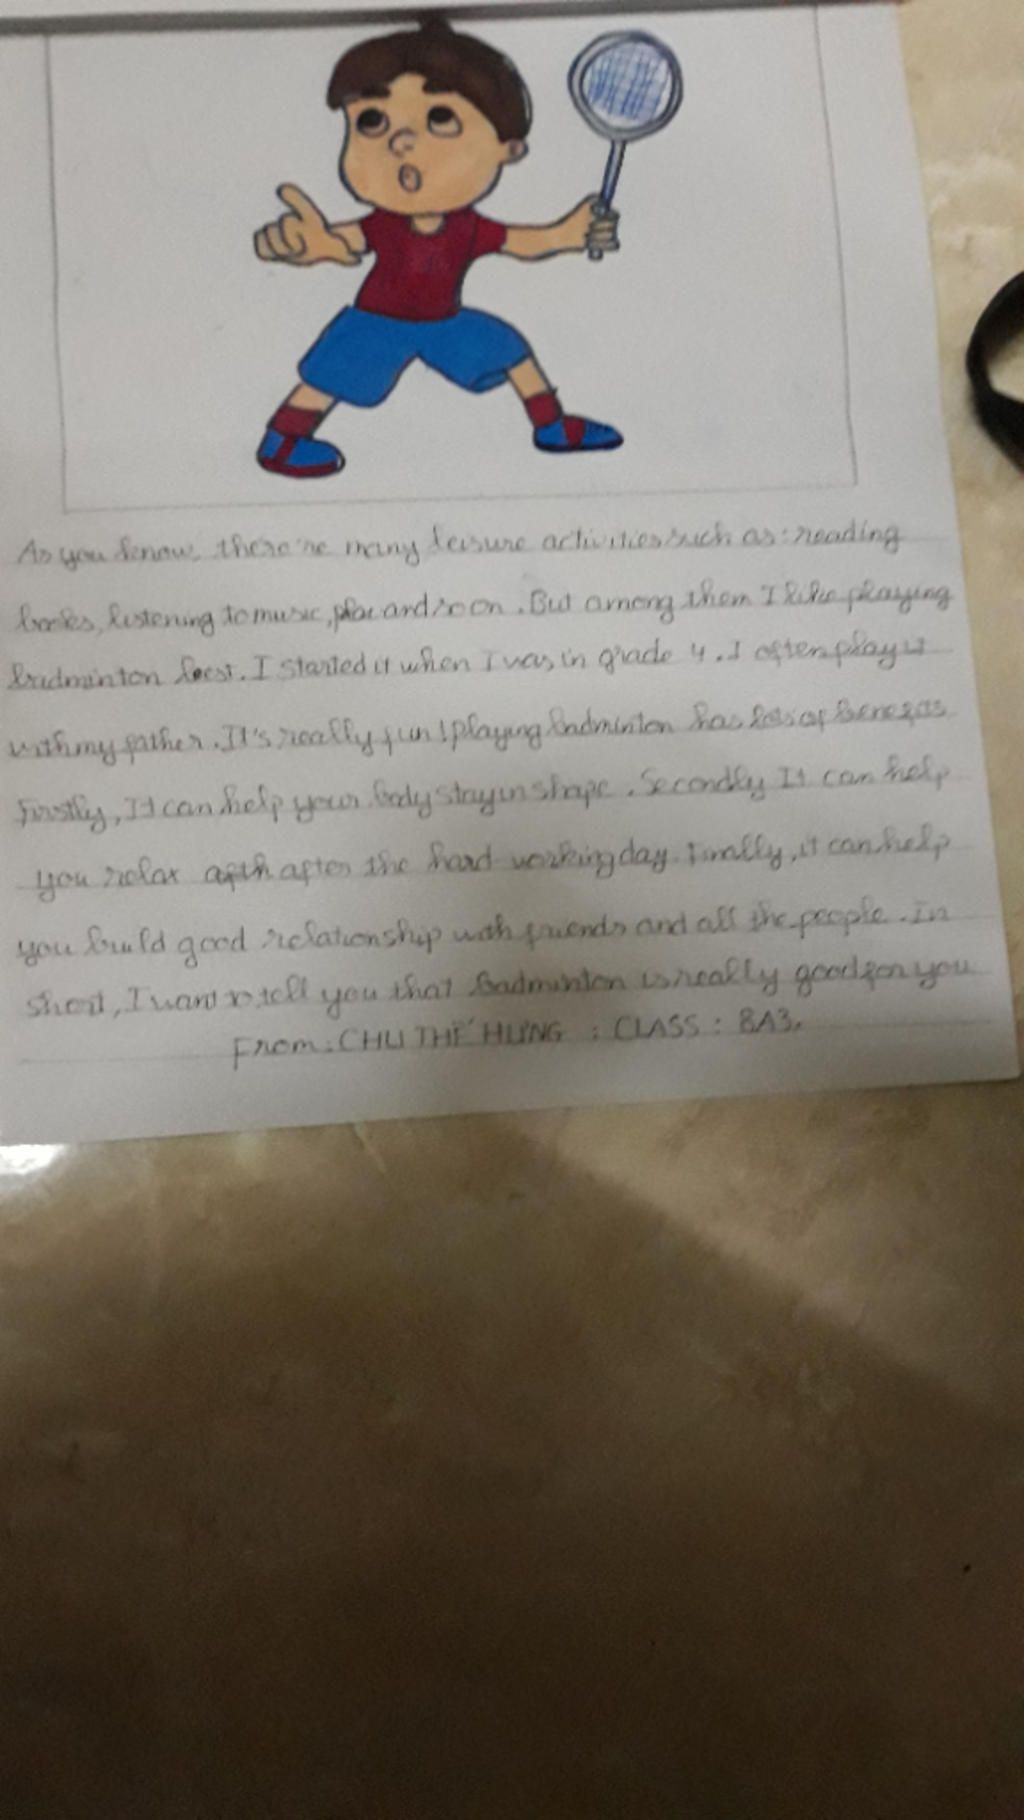 As you know, there're many leisure activities such as: reading
books, listening to music, and so on. But among them I like playing
badminton best. I started it when I was in grade 4. I often play it
with my father. It's really fun! playing badminton has lots of
Firstly, It can help your body stay in shape. Secondly It can help
you relax after the hard working day. Finally, it can help
you build good relationship with friends and all the people. In
short, I want to tell you that Badminton is really good for you
From: CHU THẾ HƯNG : CLASS : 8A3.